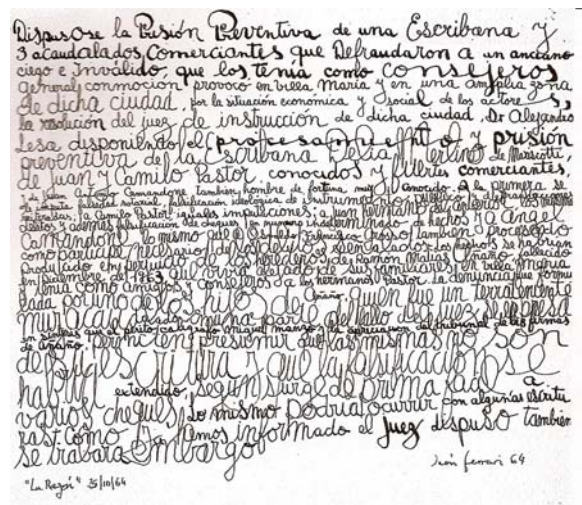 Dispusose la Prisión Preventiva de una Escribana y
3 acaudalados Comerciantes que Defraudaron a un anciano
ciego e Inválido, que los tenía como consejeros
general conmocion provoco en Villa María y en una amplia zona
de dicha ciudad, por la situación económica y social de los actores,
la resolución del juez de instrucción de dicha ciudad, Dr Alejandro
Lesa disponiendo el procesamiento y prisión
preventiva de la Escribana Delia Merlino de Mariscotti,
de Juan y Camilo Pastor, conocidos y fuertes comerciantes,
y de Juan Antonio Comandone también hombre de fortuna muy conocido. A la primera se
imputa falsedad notarial, falsificación ideológica de instrumentos públicos y defraudaciones
a Camilo Pastor iguales imputaciones; a Juan hermano del anterior los mismos
delitos y además falsificación de cheques en número indeterminado de hechos y a Angel
Comandone lo mismo que el Francisco Crosso también procesado
como participe necesario de los delitos señalados. Los hechos se habrian
producido en perjuicio de los herederos de Ramon Matias Añaño, fallecido
en Diciembre de 1963 que vivía alejado de sus familiares en Villa María y
tenía como amigos y consejeros a los hermanos Pastor. La denuncia fue formu
lada por uno de los hijos de Añaño, quien fue un terrateniente
muy acaudalado. una parte del fallo del juez expresa
en sintesis que el perito caligrafo Miguel Manzo y la apreciacion del tribunal de las firmas
de Añaño, permiten presumir que las mismas no son
de puño y escritura y que la falsificación se
habria extendido, según surge de prima facie a
varios cheques, lo mismo podría ocurrir con algunas escritu
ras. Como ya hemos informado el juez dispuso también
se trabara Embargo
León Ferrari 64
"La Razón" 25/10/64